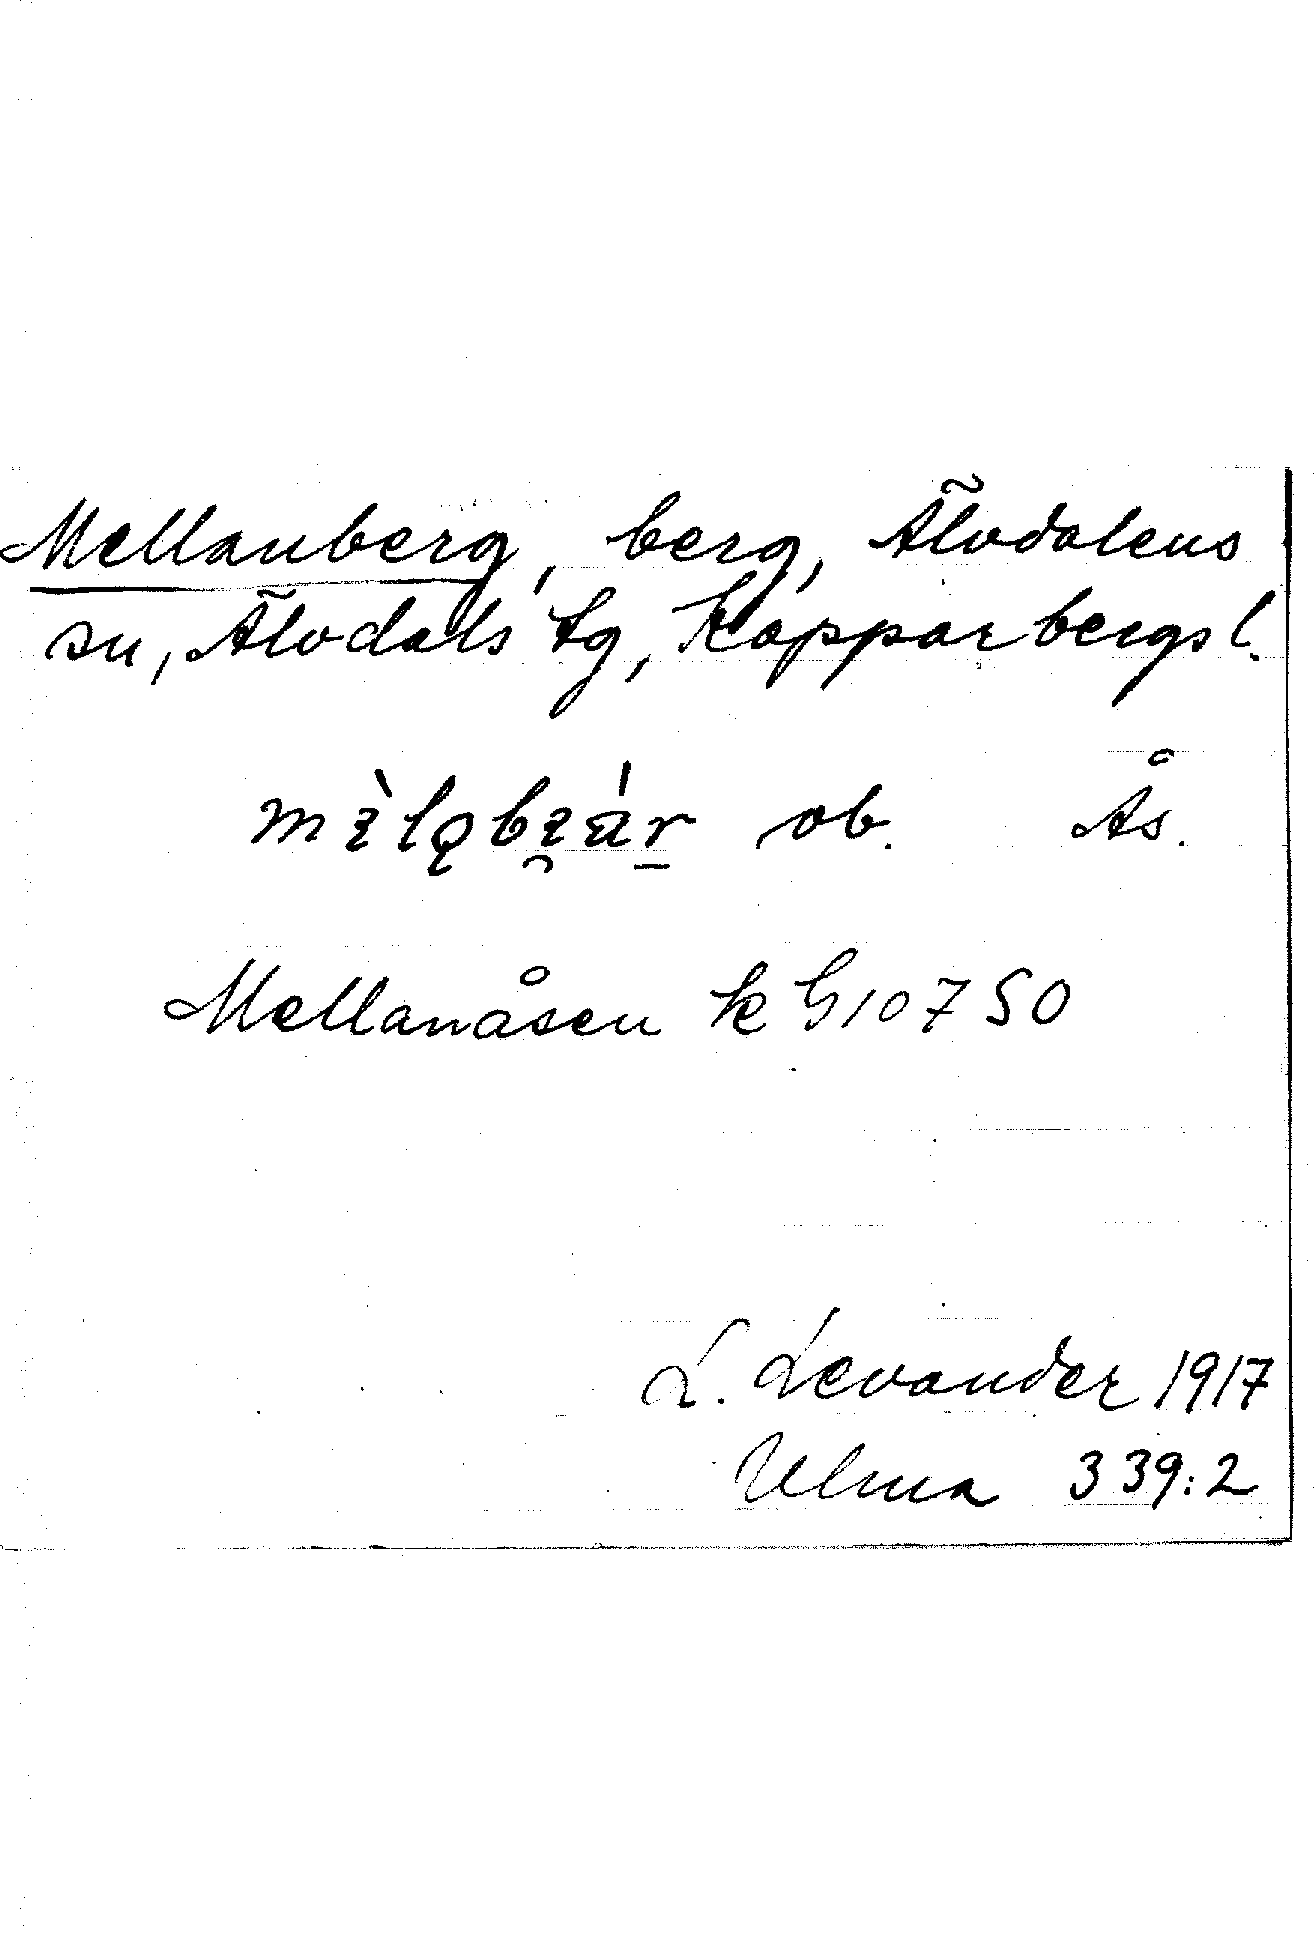 Mellanberg, berg, Älvdalens
sn, Älvdals tg, Kopparbergs l.
ob. Ås.
Mellanåsen k G10750
L. Levander 1917
Ulma 339:2